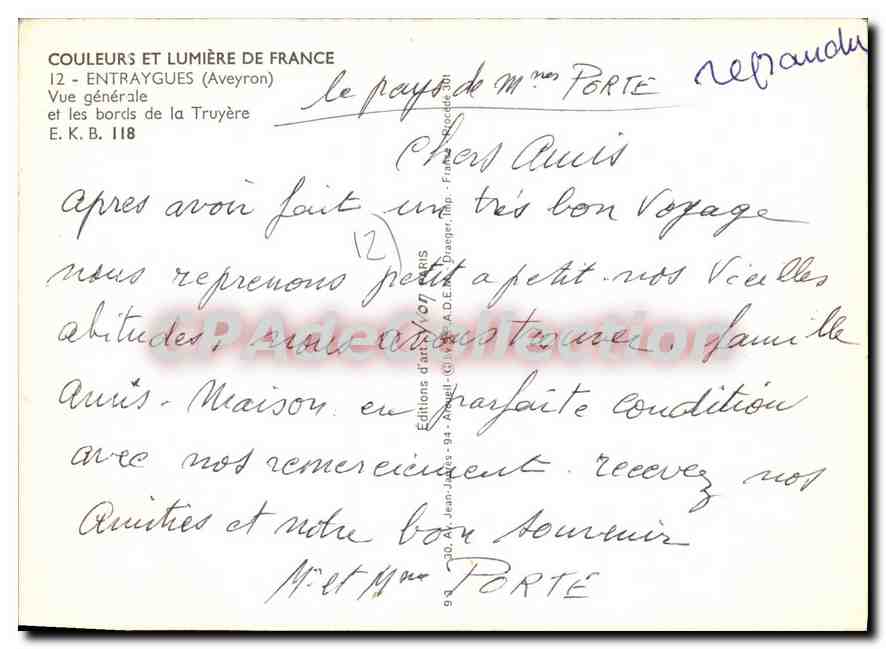 COULEURS ET LUMIÈRE DE FRANCE
12 - ENTRAYGUES (Aveyron)
Vue générale
et les bords de la Truyère
E. K. B. 118
le pays de Mmes PORTE
repandu
Chers Amis
apres avoir fait un très bon Voyage
12
nous reprenons petit a petit nos Vieilles
abitudes, nous avons trouver. famille
amis - Maison en parfaite condition
avec nos remerciement. recevez nos
Amitiés et notre bon souvenir
Mr et Mme PORTE
Éditions d'art Yvon PARIS
30, Av. Jean-Jaurès - 94 - Arcueil - A.D.E. Draeger, Imp. - France - Procédé 301
CPAdeCollection